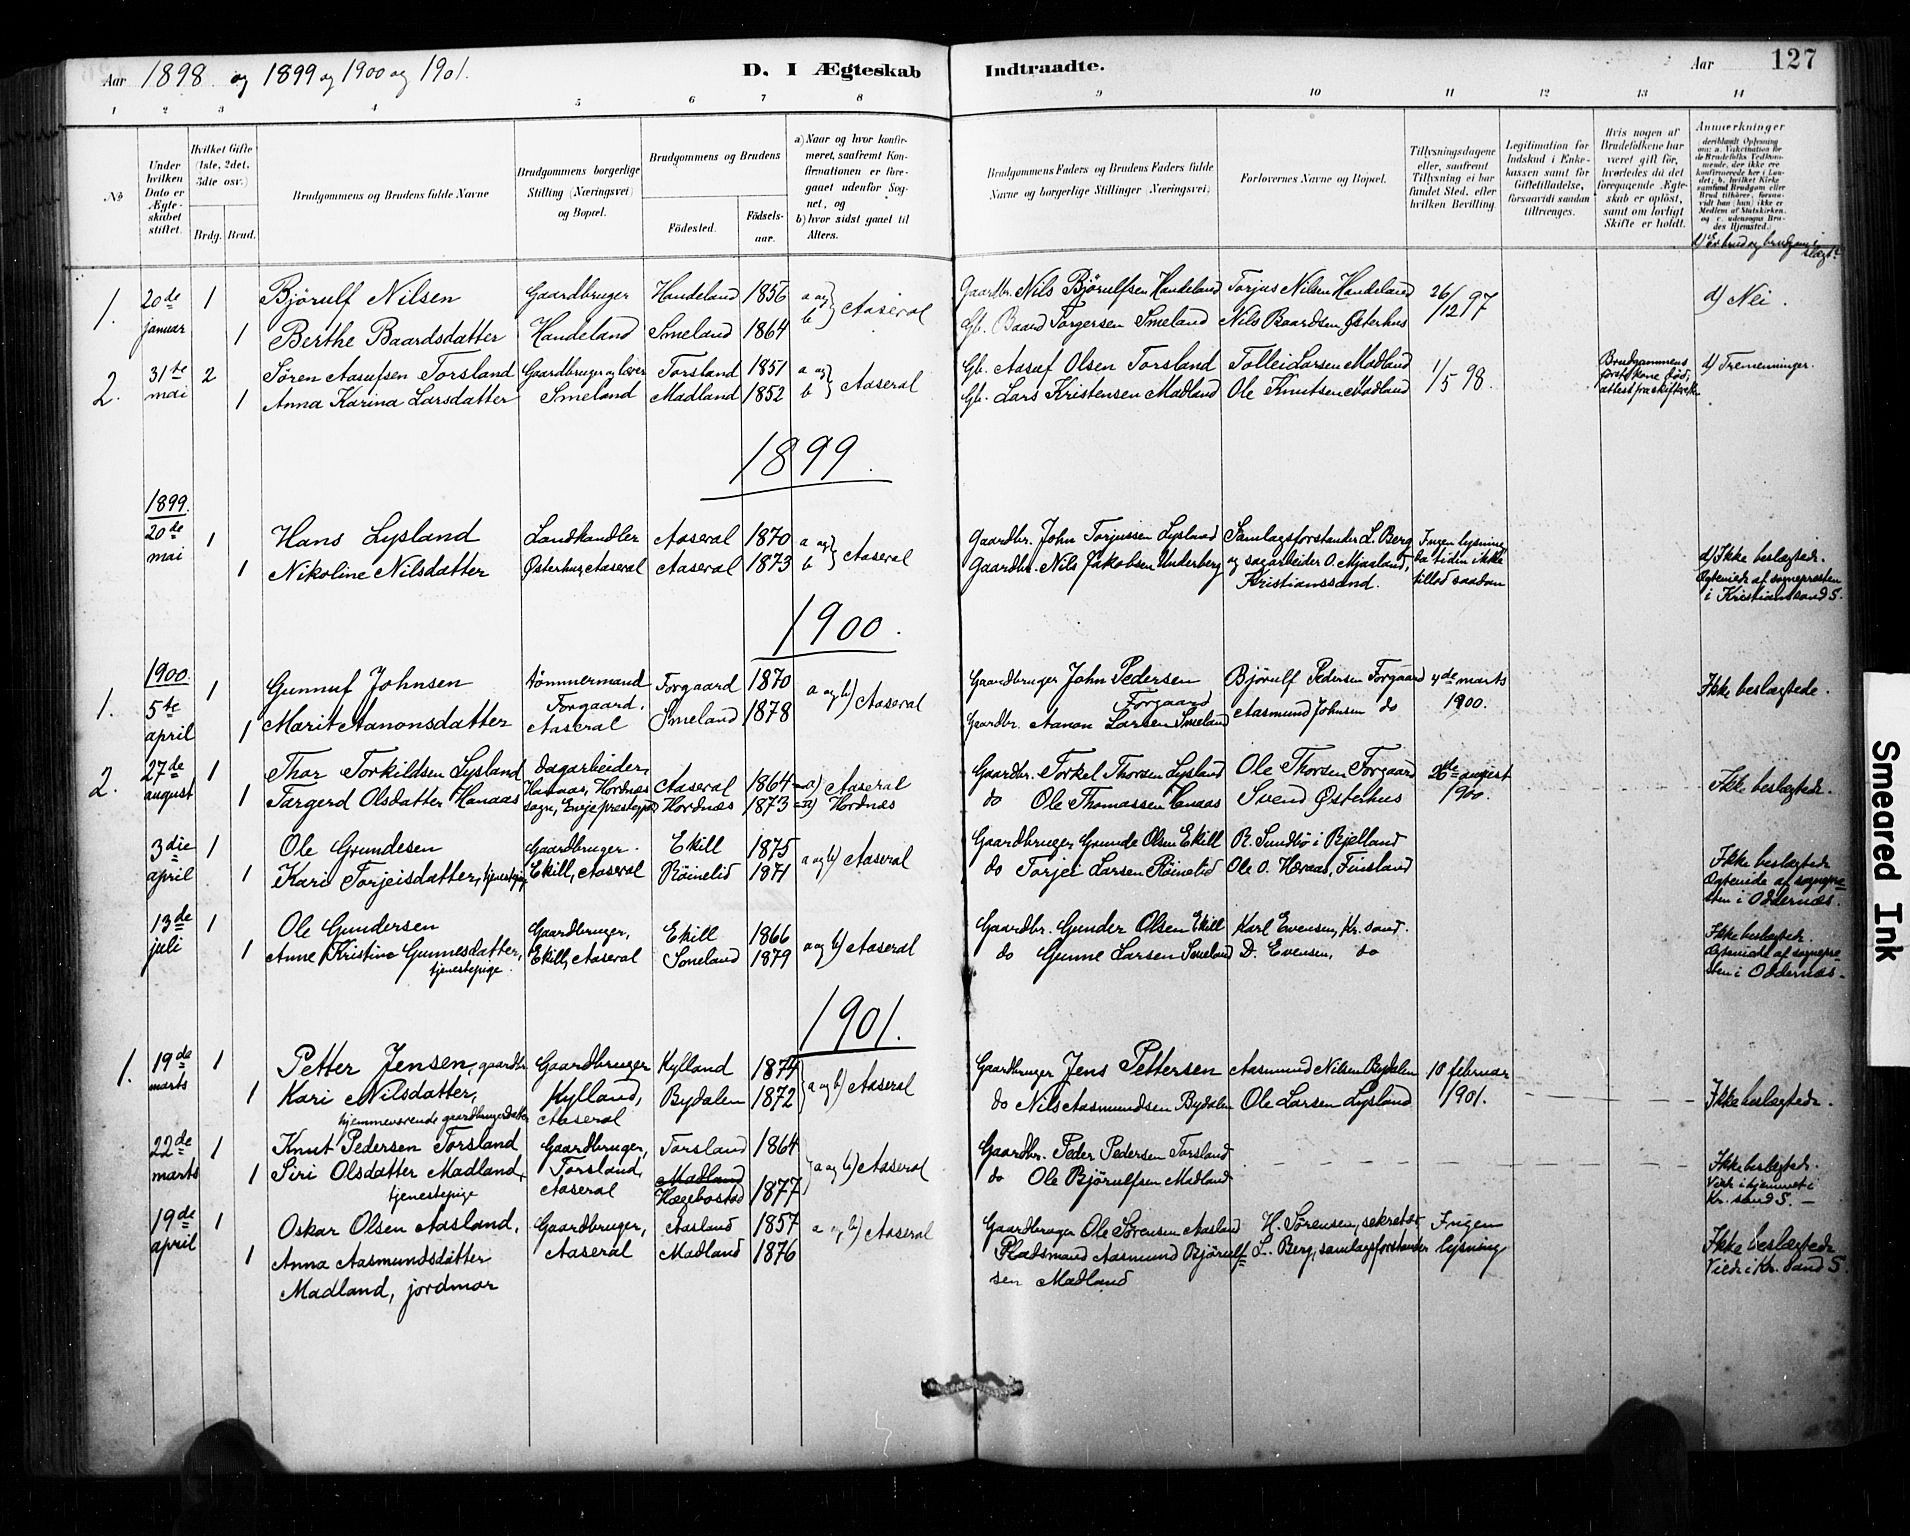 Aar 1898 og 1899 og 1900 og 1901. D. I Ægteskab Indtraadte. Aar 127
1 2 3 4 5 6 7 8 9 10 11 12 13 14
No
Under hvilken Dato er Ægteskabet stiftet.
Hvilket Gifte (1ste, 2det, 3die osv.)
Brdg. Brud.
Brudgommens og Brudens fulde Navne
Brudgommens borgerlige Stilling (Næringsvei) og Bopæl.
Brudgommens og Brudens
Fødested.
Fødselsaar.
a) Naar og hvor konfirmeret, saafremt Konfirmationen er foregaaet udenfor Sognet, og
b) hvor sidst gaaet til Alters.
Brudgommens Faders og Brudens Faders fulde Navne og borgerlige Stillinger (Næringsvei)
Forlovernes Navne og Bopæl.
Tillysningsdagene eller, saafremt Tillysning ei har fundet Sted, efter hvilken Bevilling.
Legitimation for Indskud i Enkekassen samt for Giftetilladelse, forsaavidt saadan tiltrænges.
Hvis nogen af Brudefolkene har været gift før, hvorledes da det foregaaende Ægteskab er opløst, samt om lovligt Skifte er holdt.
Anmerkninger
d) Er brud og brudgom i slægt?
1. 20de januar 1 Bjørulf Nilsen Gaardbruger Handeland 1856 a og b} Aaseral Gaardbr. Nils Bjørulfsen Handeland Torjus Nilsen Handeland 26/12 97 d) Nei.
1 Berthe Baardsdatter Handeland Smeland 1864 Gb. Baard Torgersen Smeland Nils Baardsen Østerhus
2. 31te mai 2 Søren Aasufsen Torsland Gaardbruger og lærer Torsland 1851 a og b} Aaseral Gb. Aasuf Olsen Torsland Tollei Larsen Madland 1/5 98. Brudgommens første kone død, attest fra skifteretten d) Tremenninger.
1 Anna Karina Larsdatter Smeland Madland 1852 Gb. Lars Kristensen Madland Ole Knutsen Madland
1899.
1899.
20de mai 1 Hans Lysland Landhandler Aaseral 1870 a og b} Aaseral Gaardbr. John Torjussen Lysland Samlagsforstander L. Berg Ingen lysning,
1 Nikoline Nilsdatter Østerhus, Aaseral Aaseral 1873 Gaardbr. Nils Jakobsen Underberg og sagarbeider O. Mjaaland, Kristianssand. da tiden ikke tillod saadan d) Ikke beslægtede. Ægteviede af sognepresten i Kristianssand S.
1900.
1900.
1. 5te april 1 Gunnuf Johnsen tømmermand Forgaard 1870 a og b) Aaseral Gaardbruger John Pedersen Forgaard Bjørulf Pedersen Forgaard 4de marts 1900. Ikke beslægtede.
1 Marit Aanonsdatter Forgaard, Aaseral Smeland 1878 Gaardbr. Aanon Larsen Smeland Aasmund Johnsen do
2. 27de august 1 Thor Torkildsen Lysland dagarbeider, Aaseral 1864 a) Aaseral Gaardbr. Torkel Thorsen Lysland Ole Thorsen Forgaard 26de august 1900. Ikke beslægtede.
1 Targerd Olsdatter Hanaas Hanaas, Hordnæs sogn, Evje prestegj. Hordnæs 1873 a) Hordnæs do Ole Thomassen Hanaas Svend Østerhus
3die april 1 Ole Grundesen Gaardbruger. Ekill 1875 a og b) Aaseral Gaardbruger Grunde Olsen Ekill R. Sundbø i Bjelland
1 Kari Torjeisdatter, tjenestepige Ekill, Aaseral Røinelid 1871 do Torjei Larsen Røinelid Ole O. Heraas, Finsland Ikke beslægtede Ægteviede af sognepresten i Oddernæs.
13de juli 1 Ole Gundersen Gaardbruger, Ekill 1866 a og b) Aaseral Gaardbr. Gunder Olsen Ekill Karl Evensen, Kr. sand.
1 Anne Kristine Gunnesdatter, tjenestepige Ekill, Aaseral Smeland 1879 do Gunne Larsen Smeland D. Evensen, do Ikke beslægtede. Ægteviede af sognepresten i Oddernæs.
1901.
1. 19de marts 1 Petter Jensen, gaardbr. Gaardbruger Kylland 1874 a og b) Aaseral Gaardbruger Jens Pettersen Aasmund Nilsen Bydalen 10 februar 1901.
1 Kari Nilsdatter, hjemmeværende gaardbrugerdatter Kylland, Aaseral Bydalen 1872 do Nils Aasmundsen Bydalen Ole Larsen Lysland Ikke beslægtede.
22de marts 1 Knut Pedersen Torsland Gaardbruger, Torsland 1864 a og b) Aaseral Gaardbr. Peder Pedersen Torsland
1 Siri Olsdatter Madland, tjenestepige Torsland, Aaseral Madland Hægebostad 1877 do Ole Bjørulfsen Madland Ikke beslægtede. Viede i hjemmet i Kr. sand S.
19de april 1 Oskar Olsen Aasland, Gaardbruger, Aasland 1857 a og b) Aaseral Gaardbruger Ole Sørensen Aasland H. Sørensen, sekretær Ingen lysning
1 Anna Aasmundsdatter Madland, jordmor Aaseral Madland 1876 Pladsmand Aasmund Bjørulfsen Madland L. Berg, samlagsforstander Ikke beslægtede Viede i Kr. sand S.
Smeared Ink